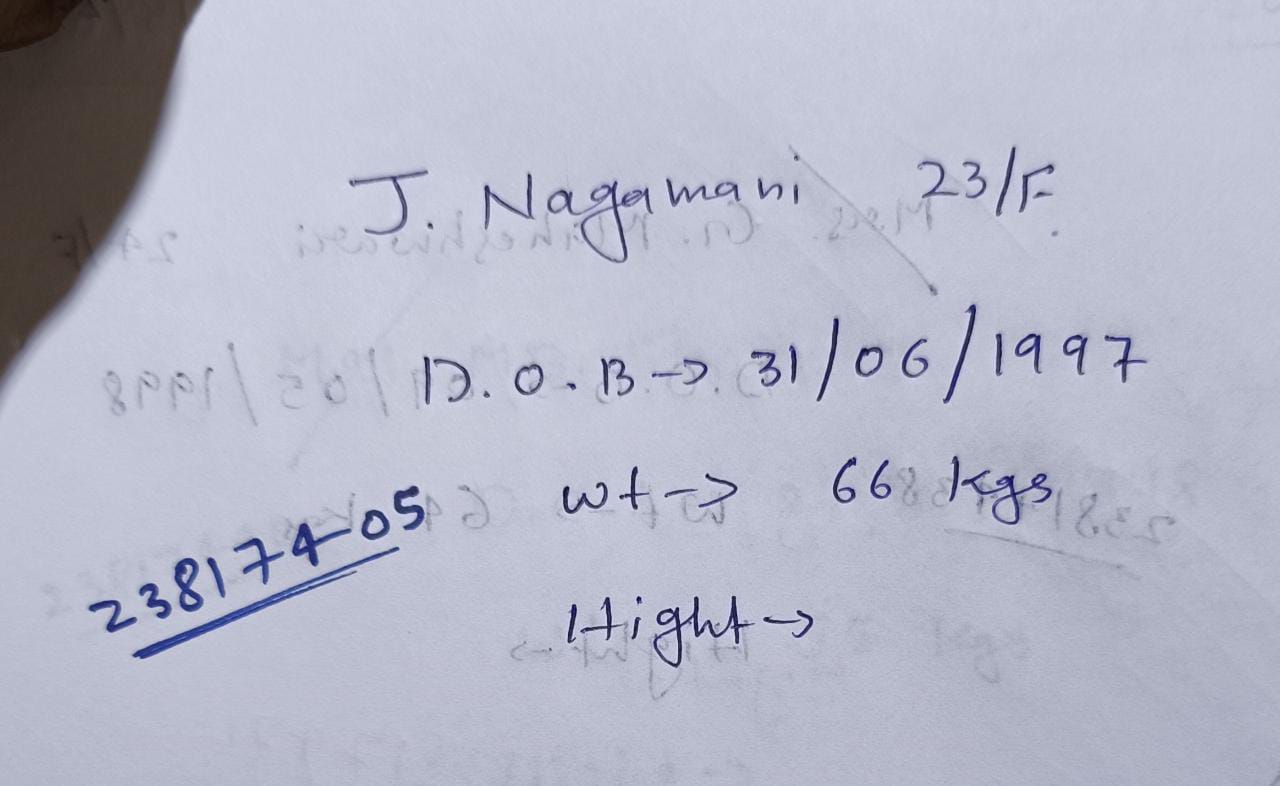 J. Nagamani 23/F.
D.O.B → 31/06/1997
wt → 66 kgs
23817405
Hight →